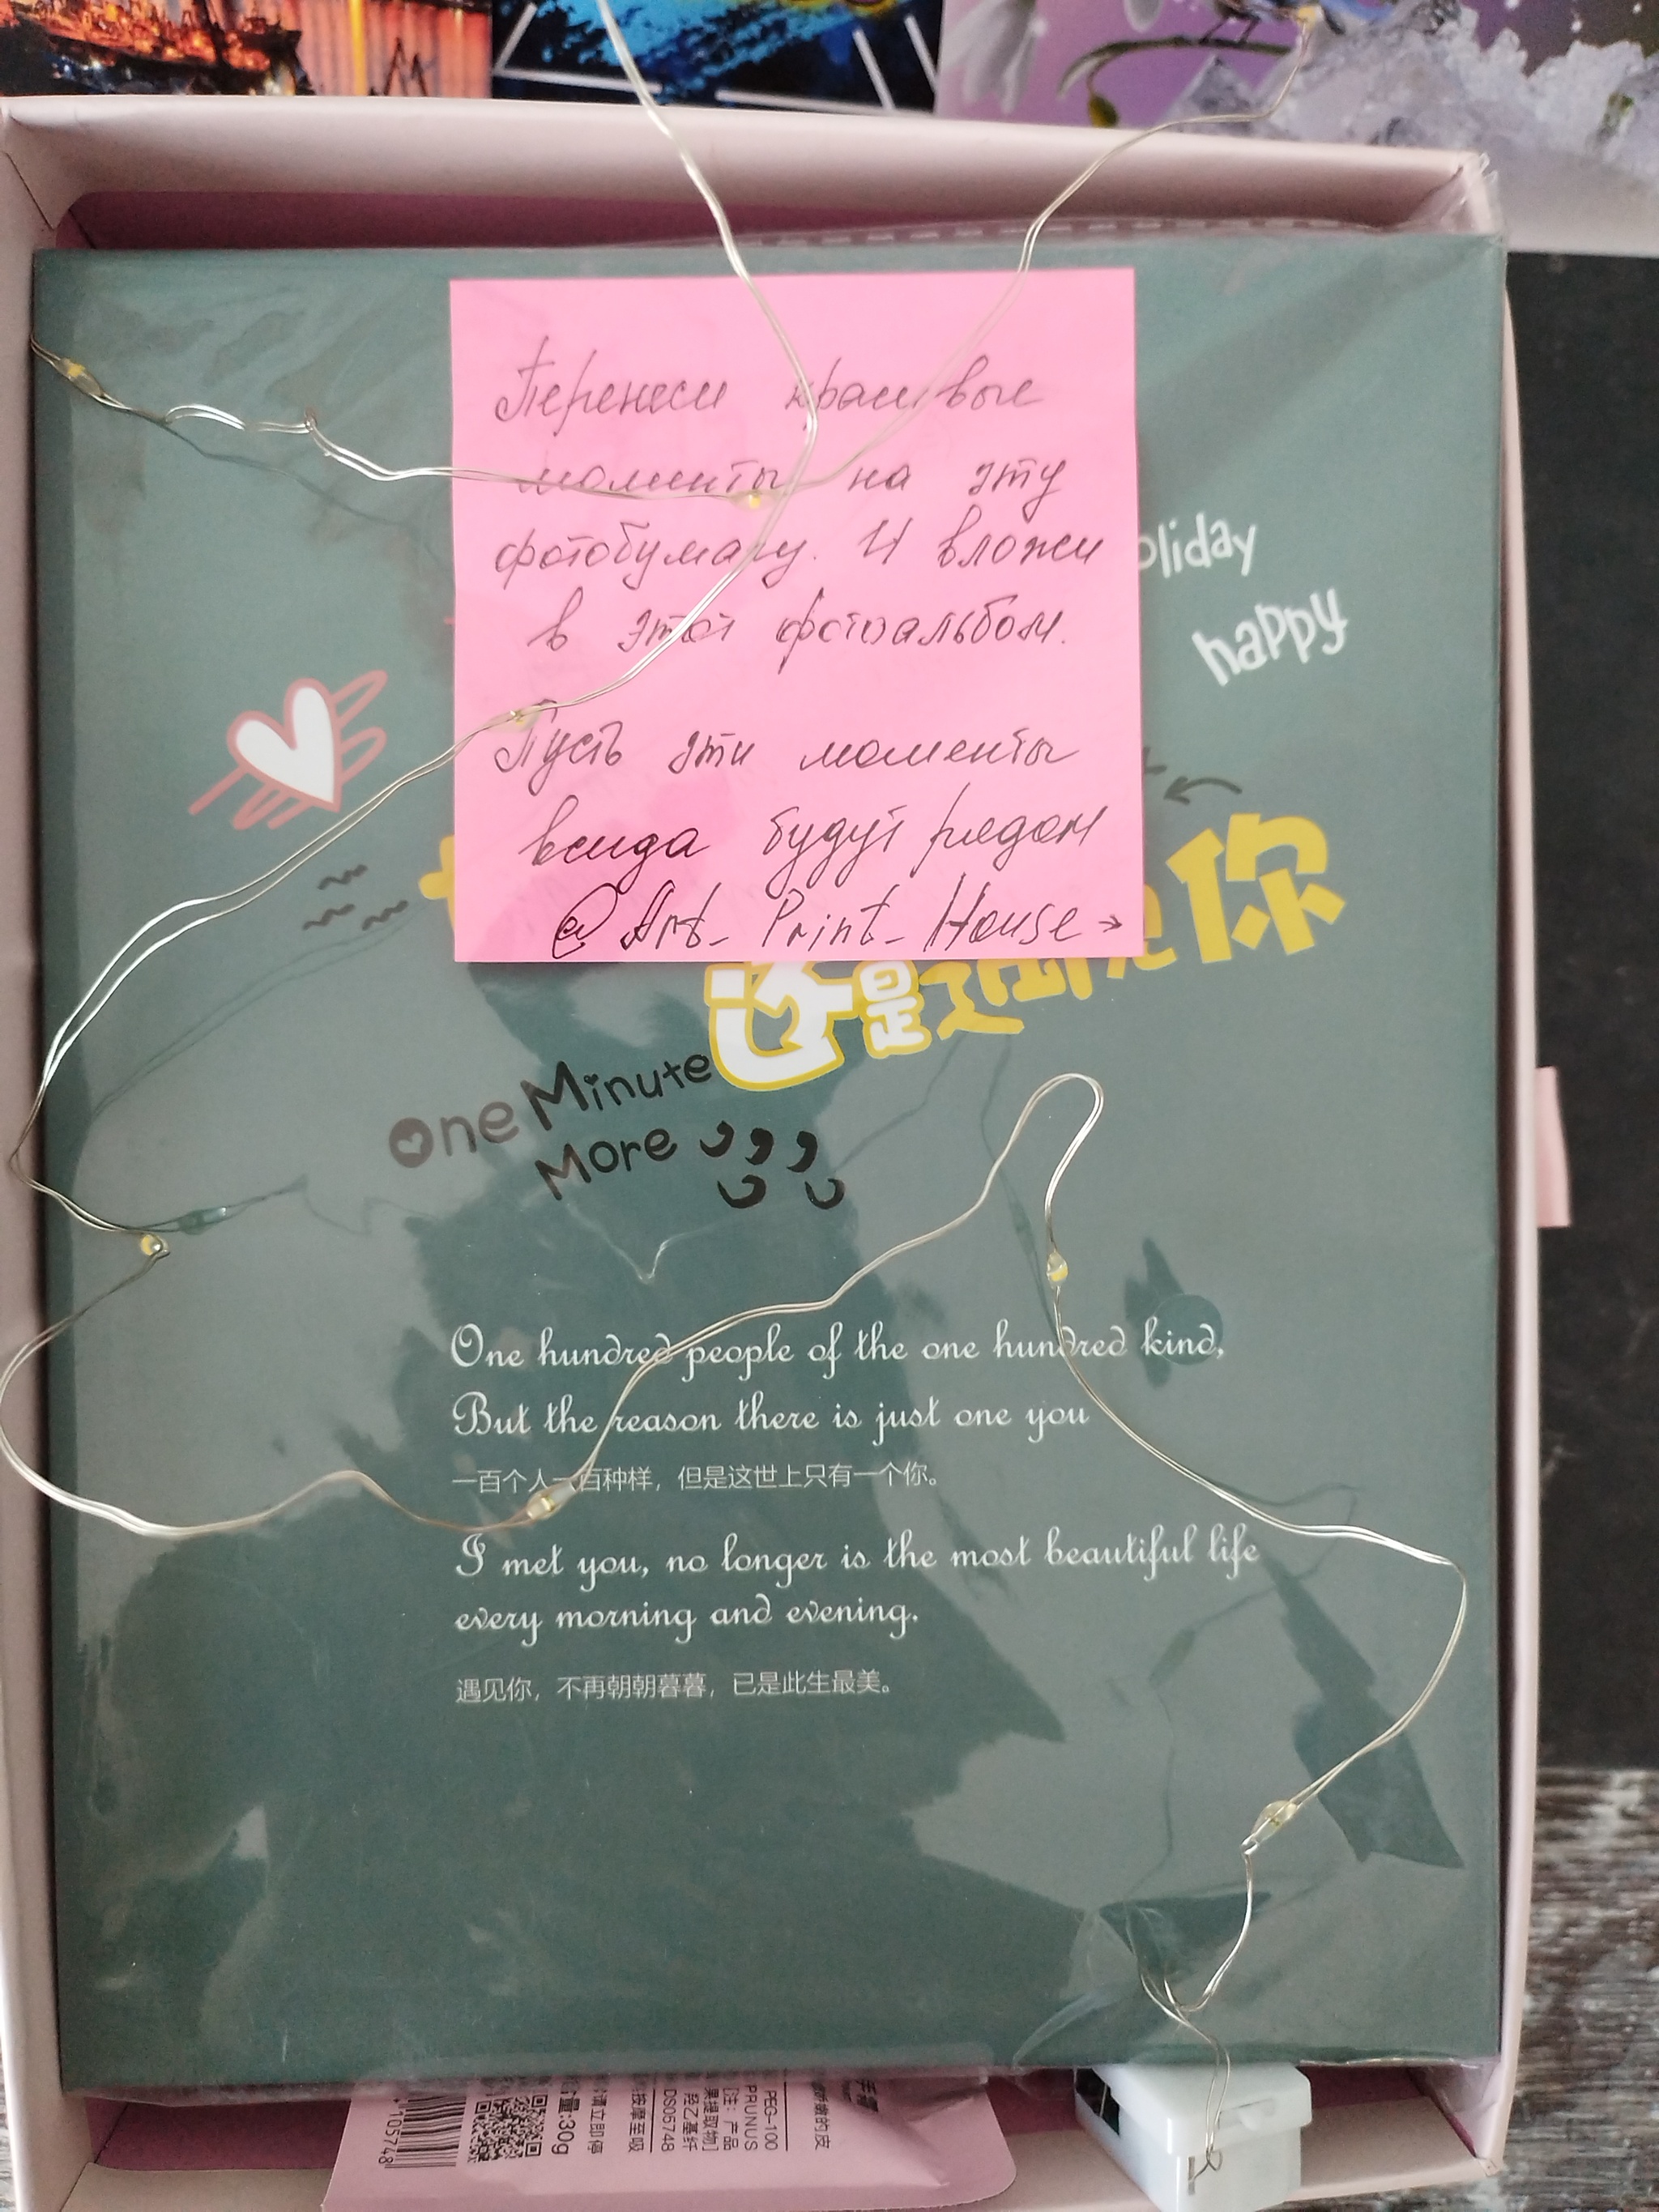 Перенеси красивые
моменты на эту
фотобумагу. И вложи
в этот фотоальбом.
Пусть эти моменты
всегда будут рядом
@Art_Print_House→
oliday
happy
你
这是
One Minute
More
One hundred people of the one hundred kind,
But the reason there is just one you
一百个人一百种样，但是这世上只有一个你。
I met you, no longer is the most beautiful life
every morning and evening.
遇见你，不再朝朝暮暮，已是此生最美。
PEG-100
PRUNUS
果提取物]
[注：产品
羟乙基纤
DS05748
按摩至吸
请立即停
量:30g
105748